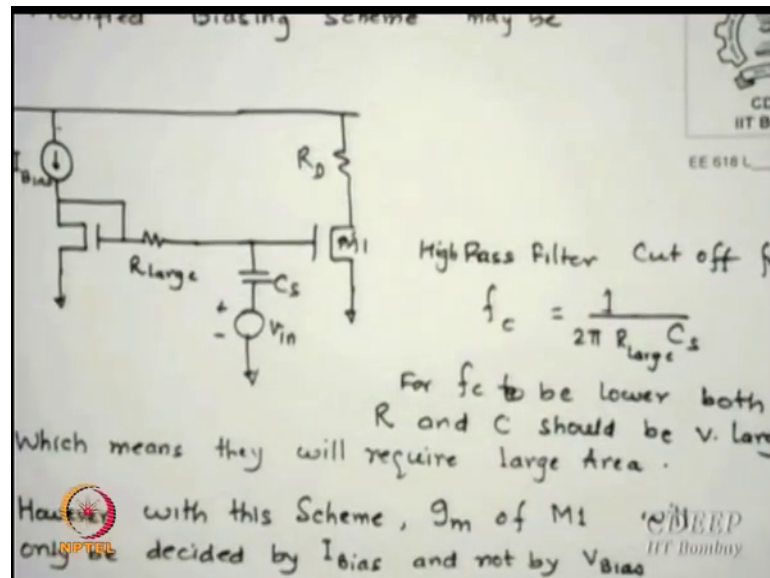 Modified Biasing Scheme may be
CD
IIT B
EE 618 L
I Bias
R_D
R_Large
M1
C_s
+
-
V_in
High Pass Filter Cut off f
f_c = 1 / 2π R_Large C_s
For f_c to be lower both
R and C should be v. Larg
Which means they will require large Area.
However with this Scheme, g_m of M1 will
only be decided by I_Bias and not by V_Bias
NPTEL
CDEEP
IIT Bombay